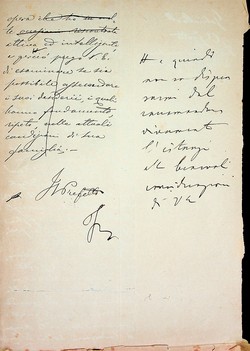 opera che ho
attivo ed intelligente,
e quindi prego V. S.
di esaminare se sia
possibile assecondare
i suoi desiderii, i quali
hanno fondamento,
ripeto, nelle attuali
condizioni di sua
famiglia.
Il Prefetto
# e quindi
non so dispen
sarmi dal
raccomandare
vivamente
l'istanza
alle benevoli
considerazioni
di V. S.